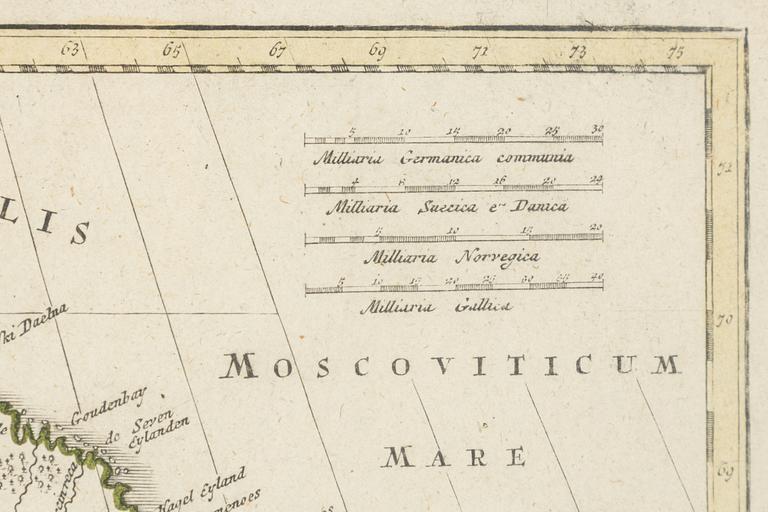 63 65 67 69 71 73 75
5 10 15 20 25 30
Milliaria Germanica communia
4 8 12 16 20 24
Milliaria Suecica et Danica
5 10 15 20
Milliaria Norvegica
5 10 15 20 25 30 35 40
Milliaria Gallica
71
LIS
ki Daelna
70
MOSCOVITICUM
Goudenbay
de Seven
Eylanden
MARE
69
Nagel Eyland
menoes
es